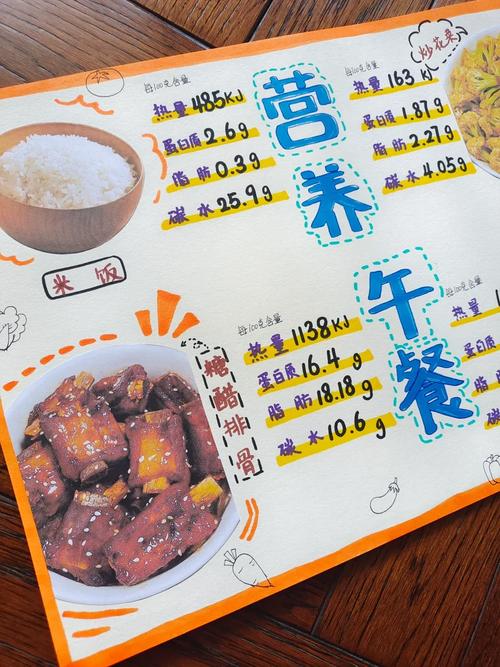 营养
午餐
每100克含量
热量 485KJ
蛋白质 2.6g
脂肪 0.3g
碳水 25.9g
米饭
炒花菜
每100克含量
热量 163 KJ
蛋白质 1.87g
脂肪 2.27g
碳水 4.05g
糖醋排骨
每100克含量
热量 1138KJ
蛋白质 16.4g
脂肪 18.18g
碳水 10.6g
每100克含量
热量 1
蛋白质
脂
碳